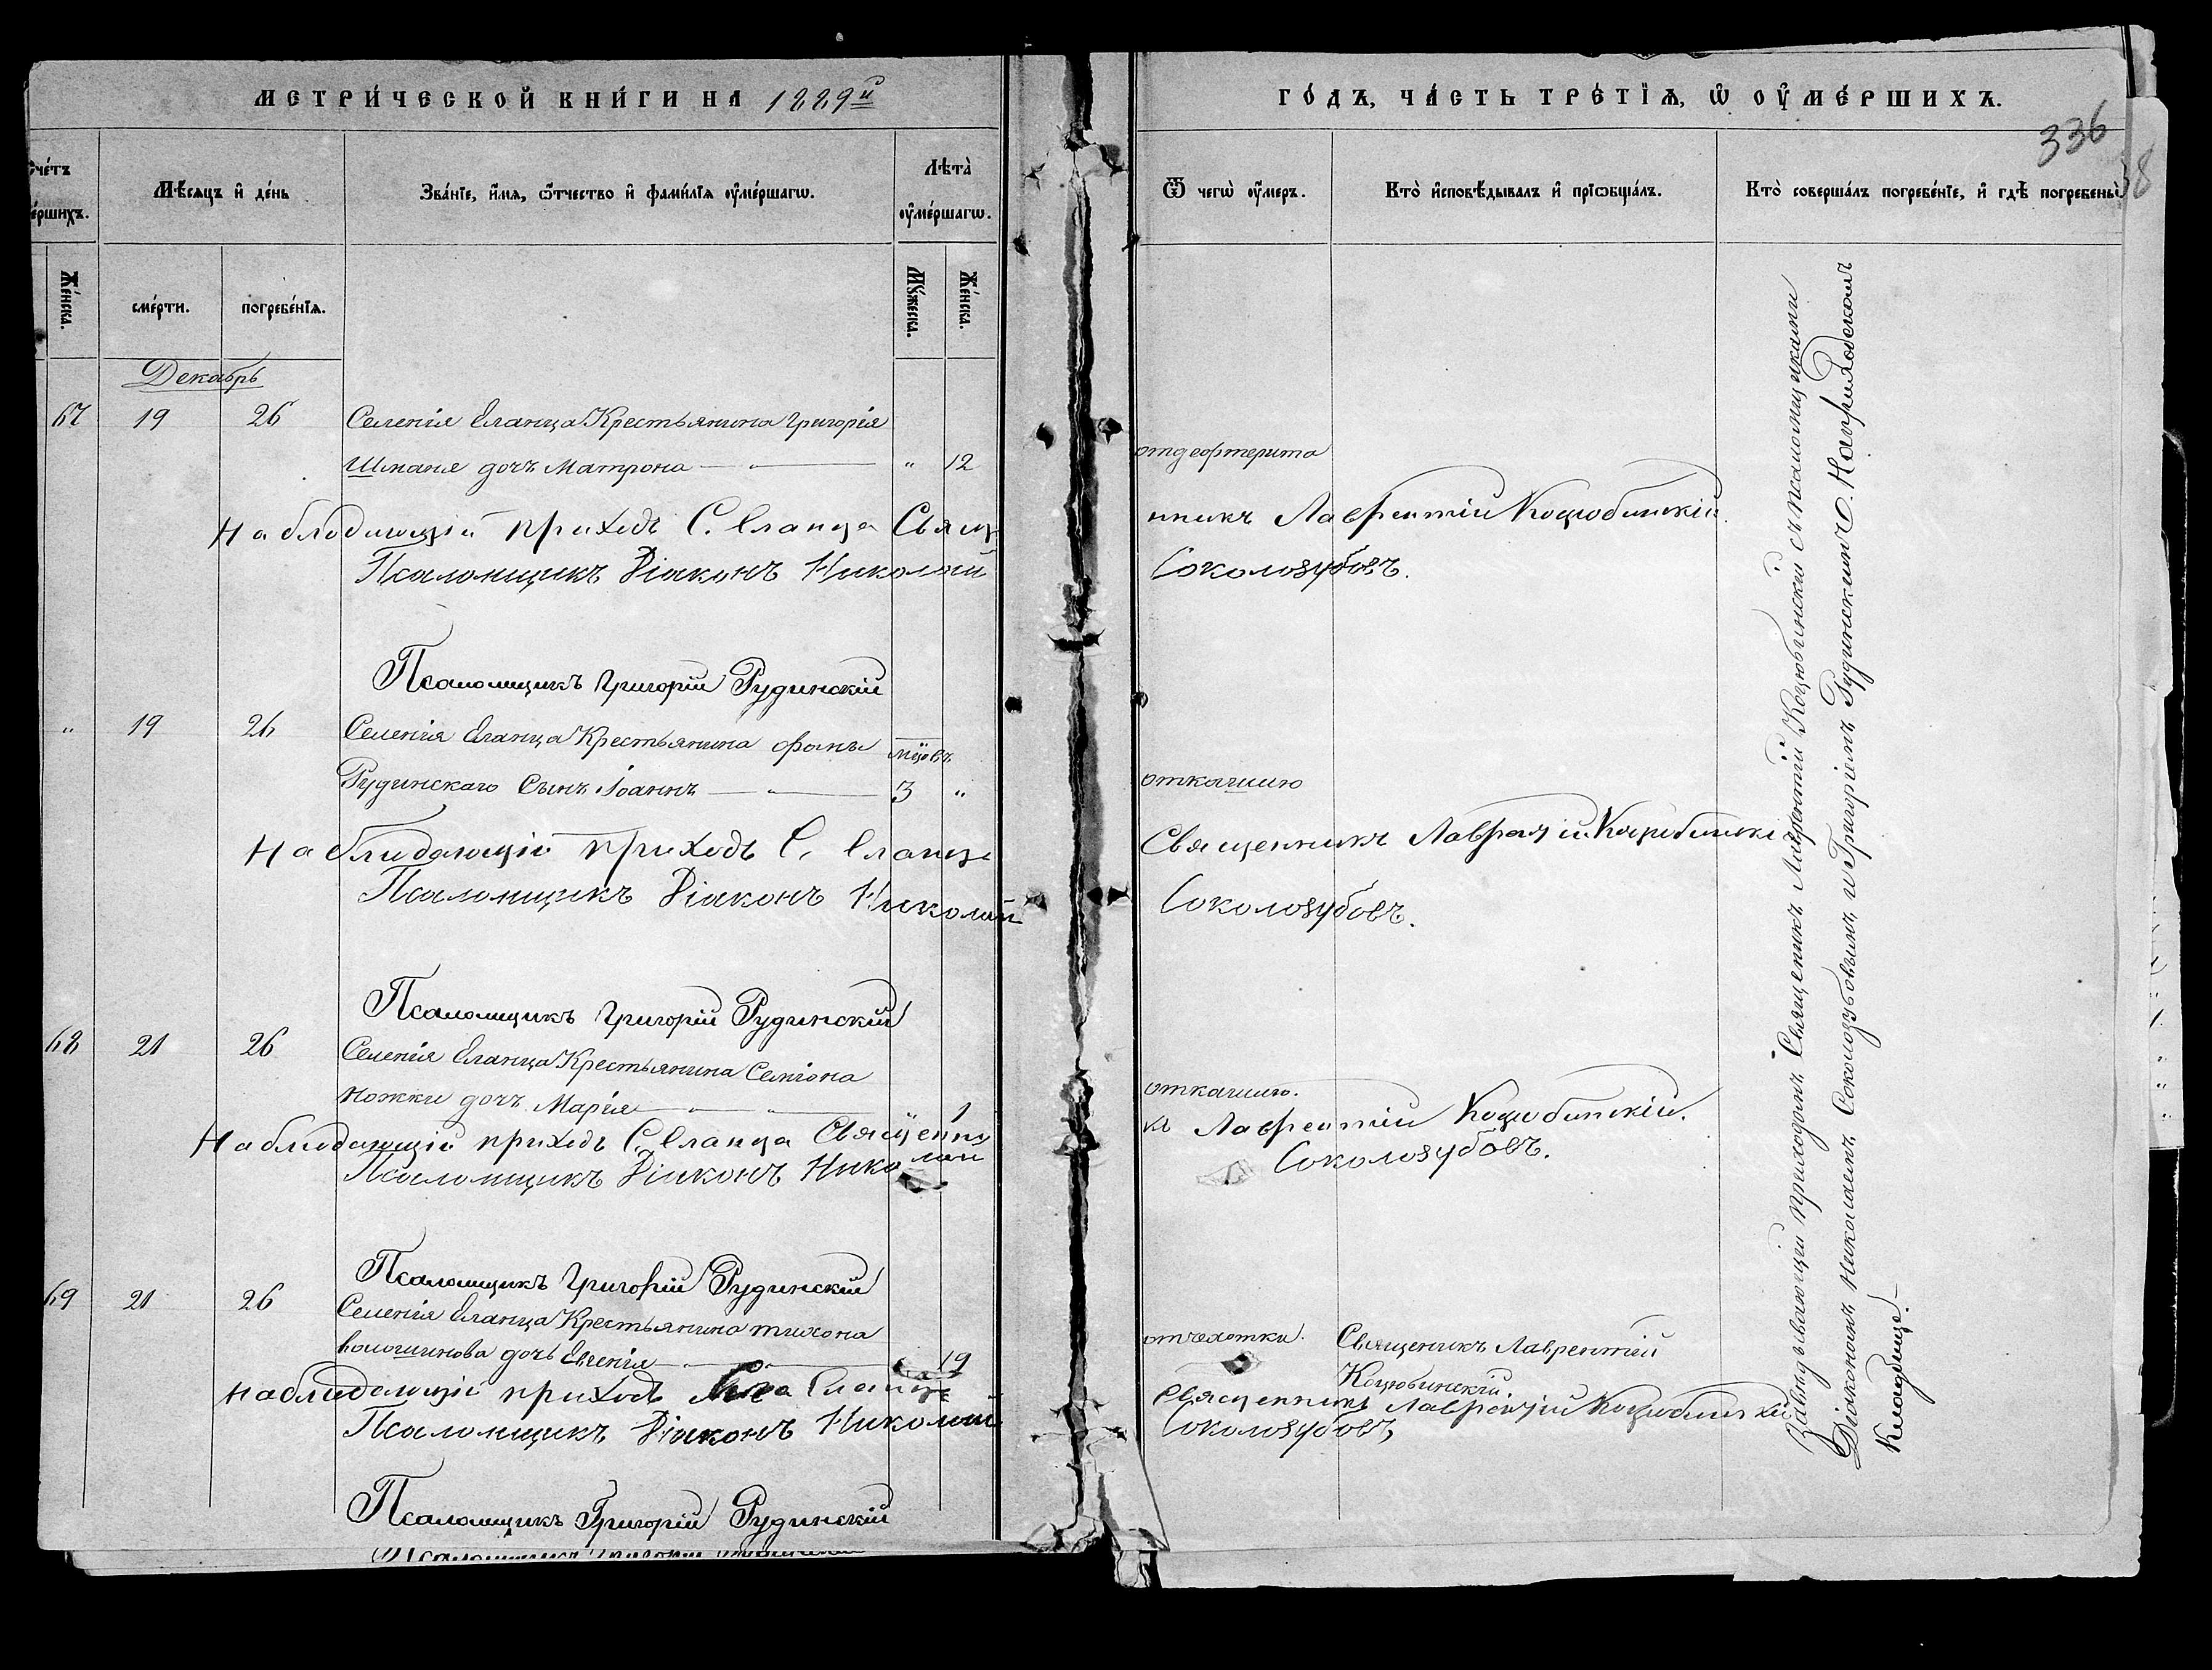 МЕТРИ́ЧЕСКОЙ КНИ́ГИ НА 1889й
ГО́ДЪ, ЧА́СТЬ ТРЕ́ТІѦ, Ѡ҆ ОУ҆МЕ́РШИХЪ.
336
Сче́тъ
ме́ршихъ.
Мѣ́сяцъ и҆ де́нь
Зва́нїе, и҆́мѧ, ѻ҆́тчество и҆ фами́лїѧ оу҆ме́ршагѡ.
Лѣ́та
оу҆ме́ршагѡ.
Ѿ чегѡ̀ оу҆́меръ.
Кто̀ и҆сповѣ́дывалъ и҆ прїѡбща́лъ.
Кто̀ соверша́лъ погребе́нїе, и҆ гдѣ̀ погребены̀
Же́нска.
сме́рти.
погребе́нїѧ.
Му́жеска.
Же́нска.
Декабрь
67 19 26 Селенія Еланца Крестьянина Григорія
Шпаня дочь Матрона — „ — „ 12 отдефтерита
Наблюдающій приходъ С. Еланца Священникъ Лаврентій Коцюбинскій.
Псаломщикъ Діаконъ Николай Соколозубовъ.
Псаломщикъ Григорій Рудинскій
„ 19 26 Селенія Еланца Крестьянина Фомы мцовъ
Рудинскаго Сынъ Іоаннъ — „ — 3 „ откашлю
Наблюдающій приходъ С. Еланца Священникъ Лаврентій Коцюбинскі
Псаломщикъ Діаконъ Николай Соколозубовъ.
Псаломщикъ Григорій Рудинскій
68 21 26 Селенія Еланца Крестьянина Семіона
Ножки дочь Марія — „ — „ — 1 откашлю.
Наблюдающій приходъ С. Еланца Священникъ Лаврентій Коцюбинскій.
Псаломщикъ Діаконъ Николай Соколозубовъ.
Псаломщикъ Григорій Рудинскій
69 21 26 Селенія Еланца Крестьянина Тихона
Волошинова дочь Евгенія — „ — 19 отчахотки. Священикъ Лаврентій
Коцюбинскій.
Наблюдающій приходъ Села Еланца Священникъ Лаврентій Коцюбинскій
Псаломщикъ Діаконъ Николай Соколозубовъ,
Псаломщикъ Григорій Рудинскій
Завѣдывающій приходомъ Священикъ Лаврентій Коцюбинскій съ псаломщиками
Діакономъ Николаемъ Соколозубовымъ и Григоріемъ Рудинскимъ
Кладбище.